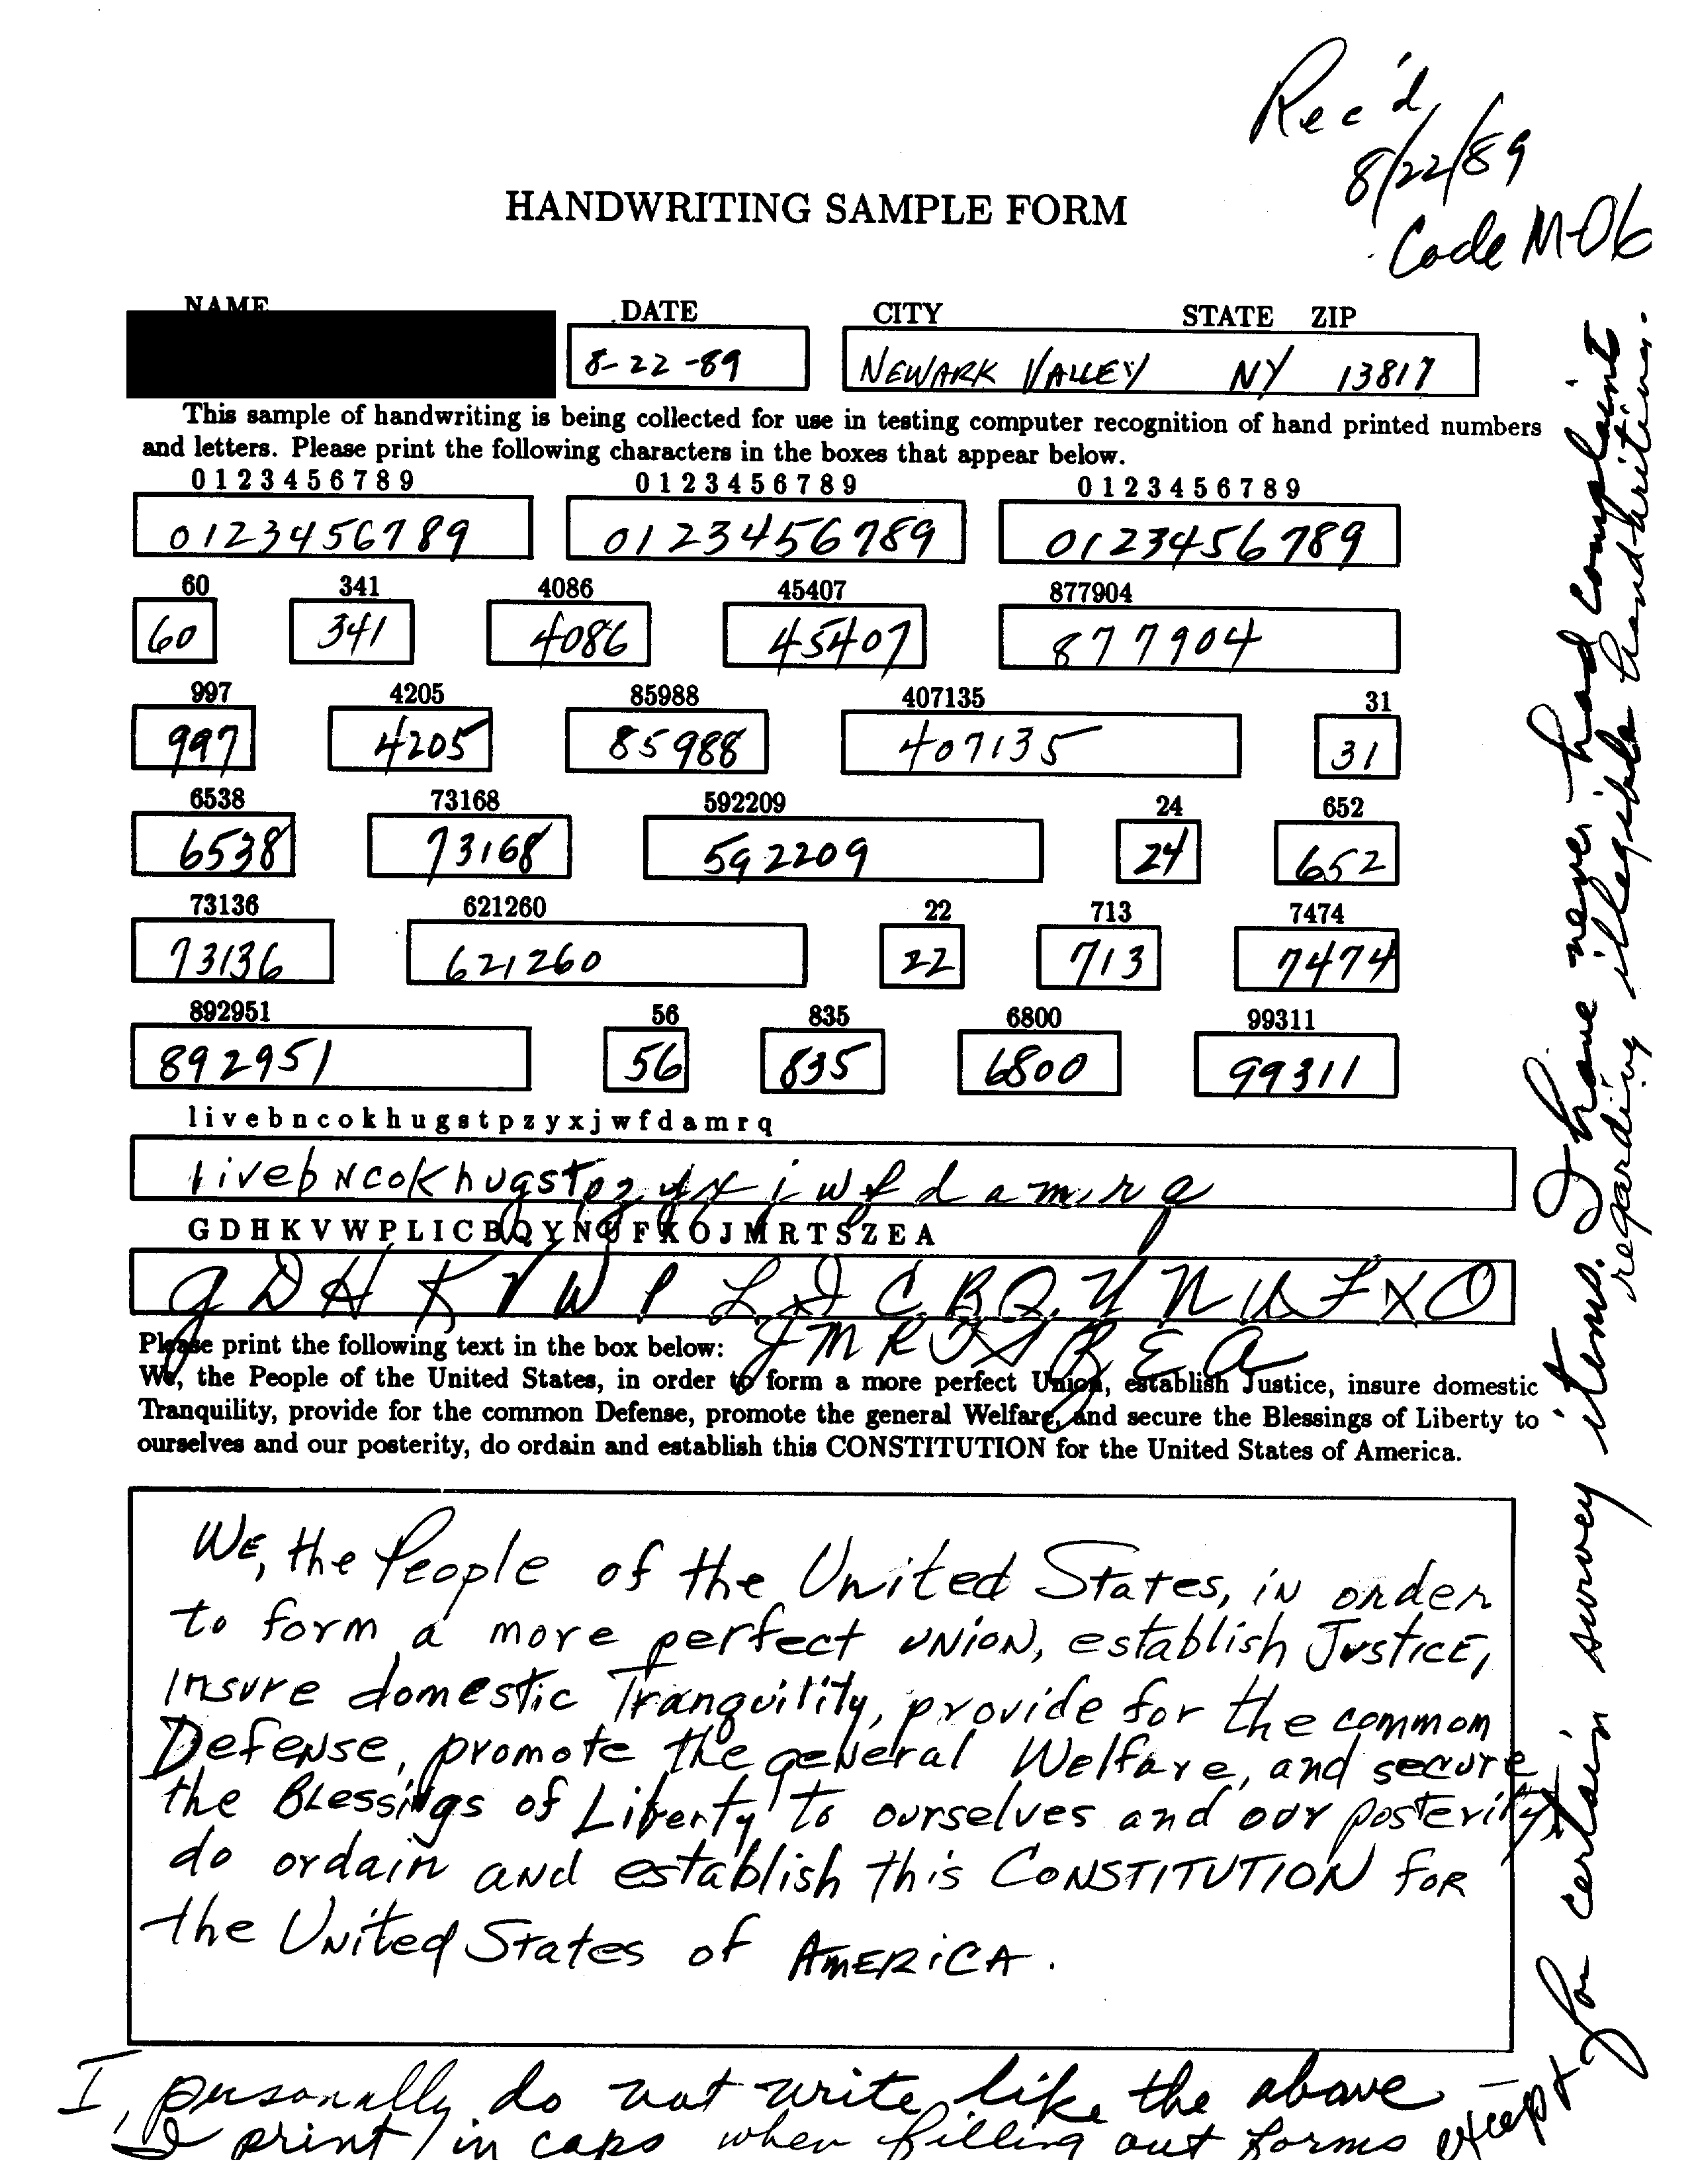 Rec'd
8/22/89
Code M-06
HANDWRITING SAMPLE FORM
NAME DATE CITY STATE ZIP
8-22-89 NEWARK VALLEY NY 13817
This sample of handwriting is being collected for use in testing computer recognition of hand printed numbers
and letters. Please print the following characters in the boxes that appear below.
0 1 2 3 4 5 6 7 8 9 0 1 2 3 4 5 6 7 8 9 0 1 2 3 4 5 6 7 8 9
0123456789 0123456789 0123456789
60 341 4086 45407 877904
60 341 4086 45407 877904
997 4205 85988 407135 31
997 4205 85988 407135 31
6538 73168 592209 24 652
6538 73168 592209 24 652
73136 621260 22 713 7474
73136 621260 22 713 7474
892951 56 835 6800 99311
892951 56 835 6800 99311
l i v e b n c o k h u g s t p z y x j w f d a m r q
l i v e b N c o K h u g s t p z y x j w f d a m r q
G D H K V W P L I C B Q Y N U F X O J M R T S Z E A
G D H K V W P L I C B Q Y N U F X O
J M R T S Z E A
Please print the following text in the box below:
We, the People of the United States, in order to form a more perfect Union, establish Justice, insure domestic
Tranquility, provide for the common Defense, promote the general Welfare, and secure the Blessings of Liberty to
ourselves and our posterity, do ordain and establish this CONSTITUTION for the United States of America.
WE, the People of the United States, iN order
to form a more perfect UNiON, establish JusticE,
Insure domestic Tranquility, provide for the common
DefeNse, promote the geNeral Welfare, and secure
the BLessiNgs of Liberty to ourselves and our posterity,
do ordain aNd establish this CONSTITUTION foR
the UNited States of AMERiCA.
I, personally do not write like the above –
I print in caps when filling out forms except
for certain survey items. I have never had complaint
regarding illegible handwriting.